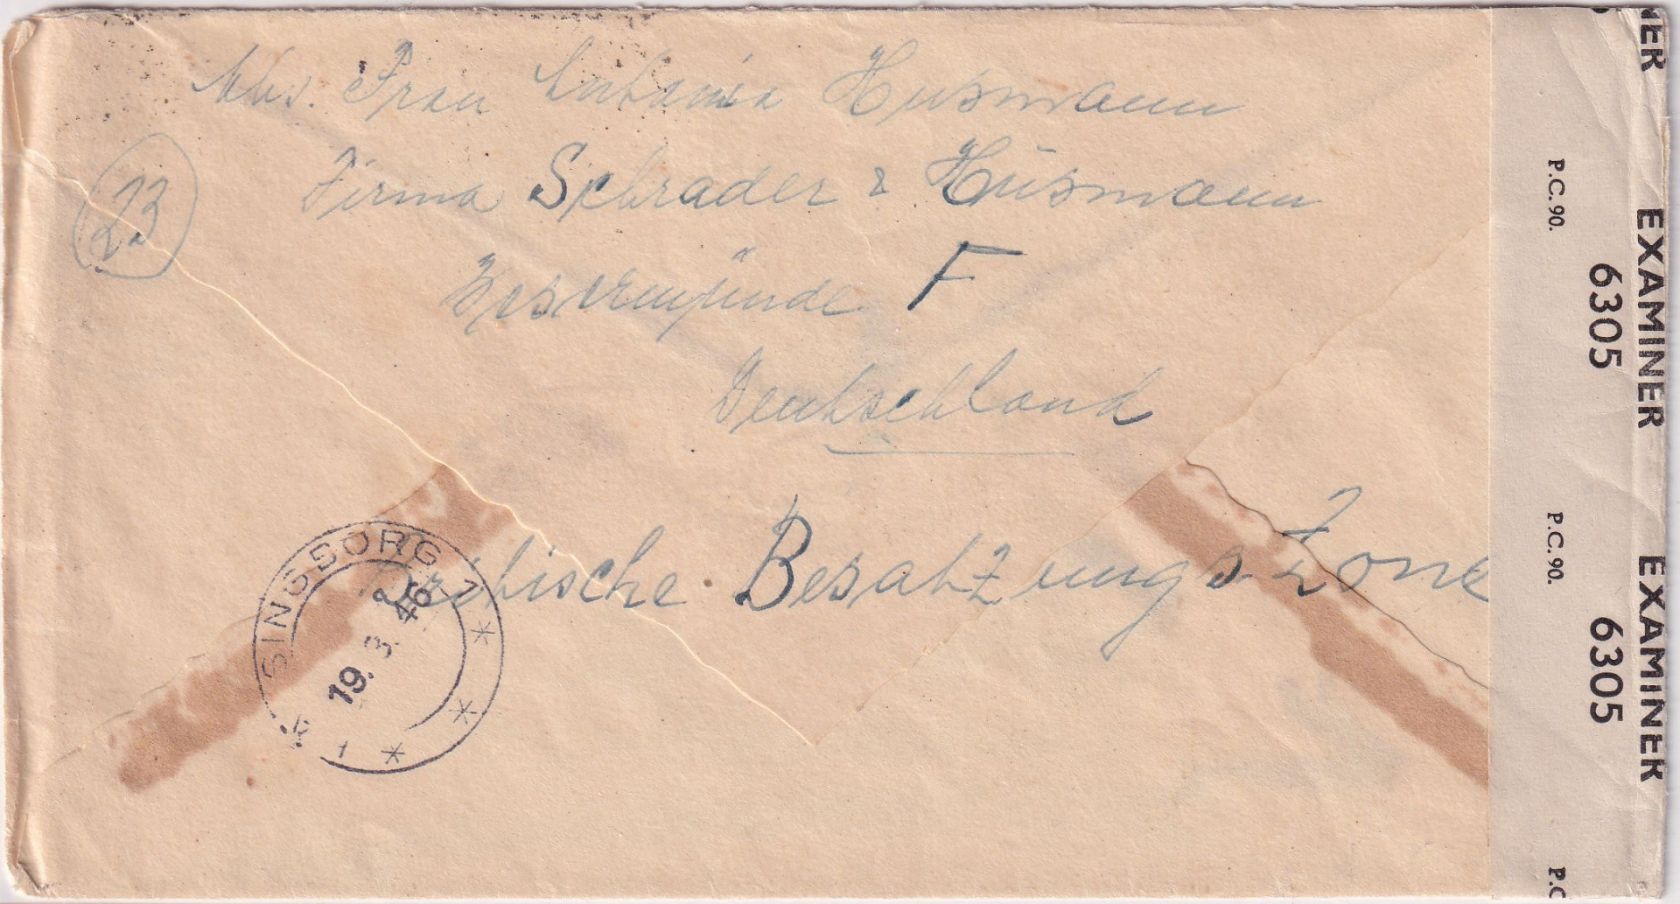 Abs. Frau Antonia Husmann
Firma Schrader & Hüsmann
23
Wesermünde F
Deutschland
Britische Besatzungs-Zone
SINGSBORG 1
19. 3. 46
NER
P.C. 90.
EXAMINER
6305
P.C. 90.
EXAMINER
6305
P.C